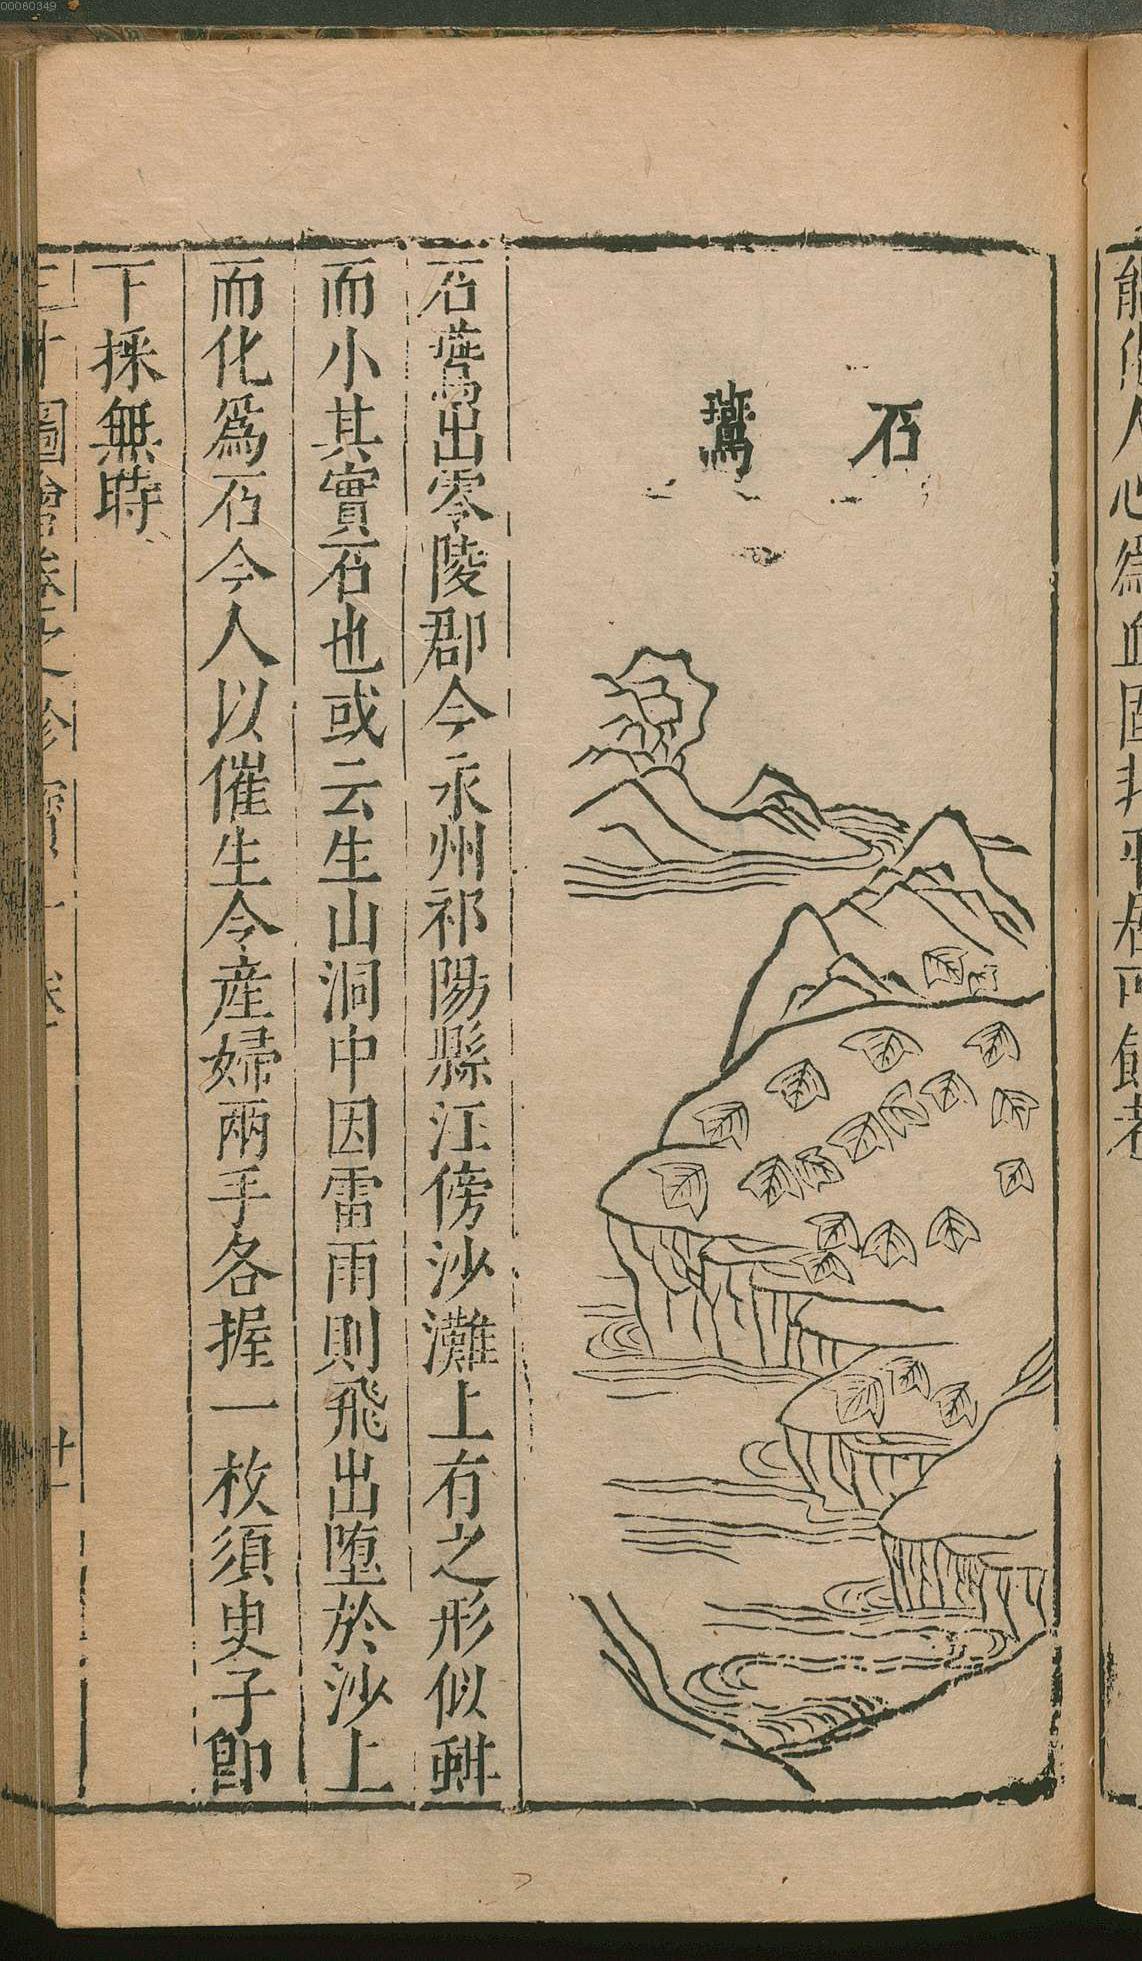 00060349
石鷰
石鷰出零陵郡今永州祁陽縣江傍沙灘上有之形似蚶
而小其實石也或云生山洞中因雷雨則飛出墮於沙上
而化爲石今人以催生令產婦兩手各握一枚須臾子卽
下採無時
三才圖會卷之珍寶一卷 廿一